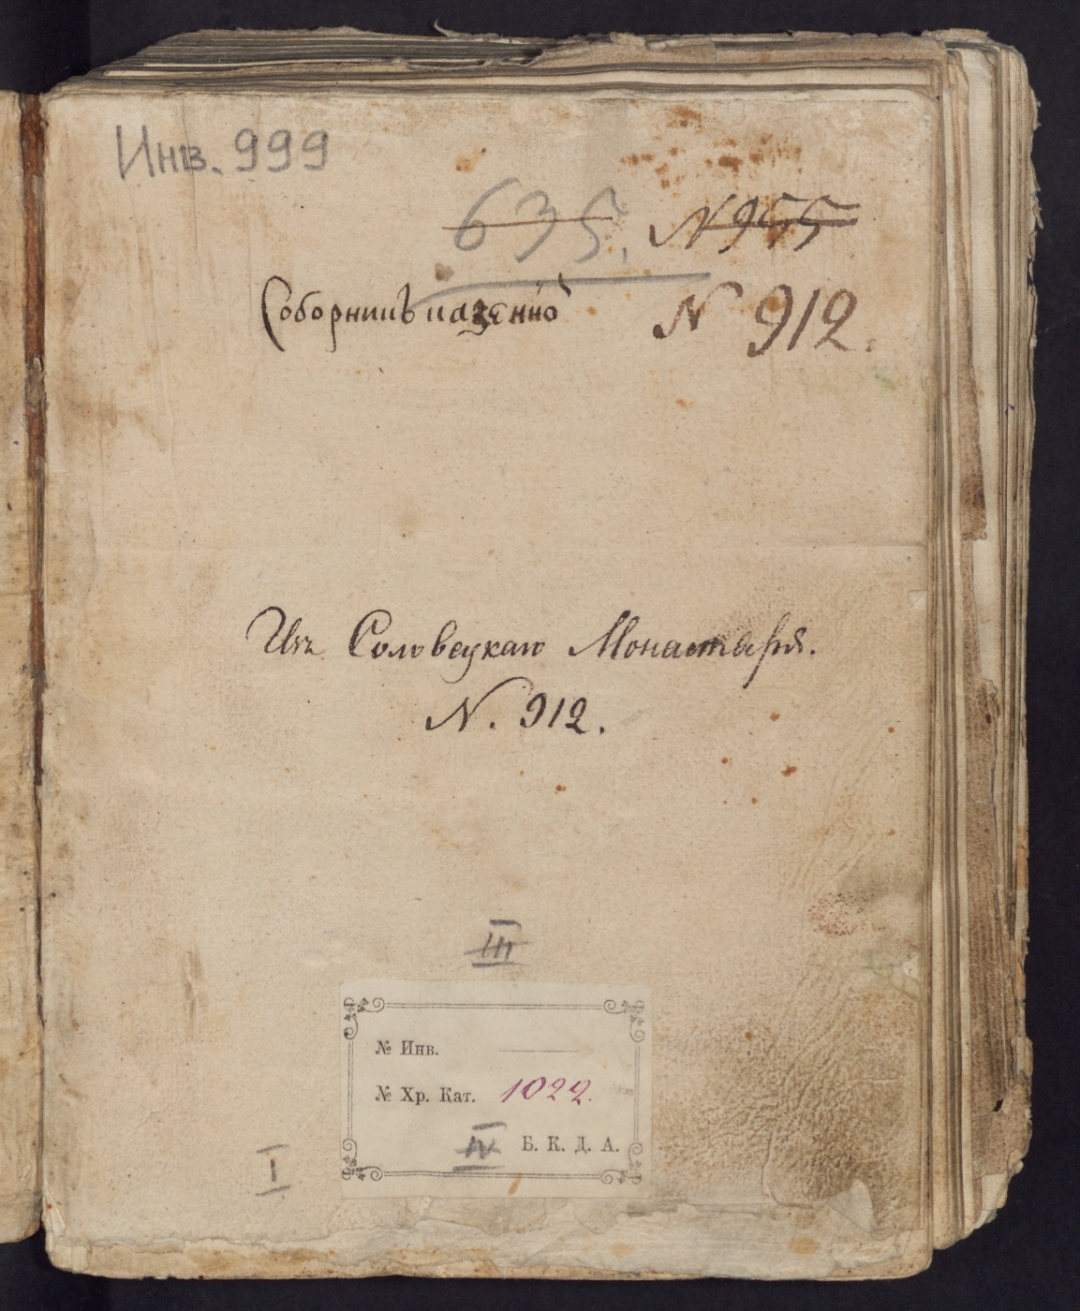 Инв. 999
635, N 955
Соборникъ казенно N 912.
Изъ Соловецкаго Монастыря.
N. 912.
III
№ Инв.
№ Хр. Кат. 1022.
IV Б. К. Д. А.
I